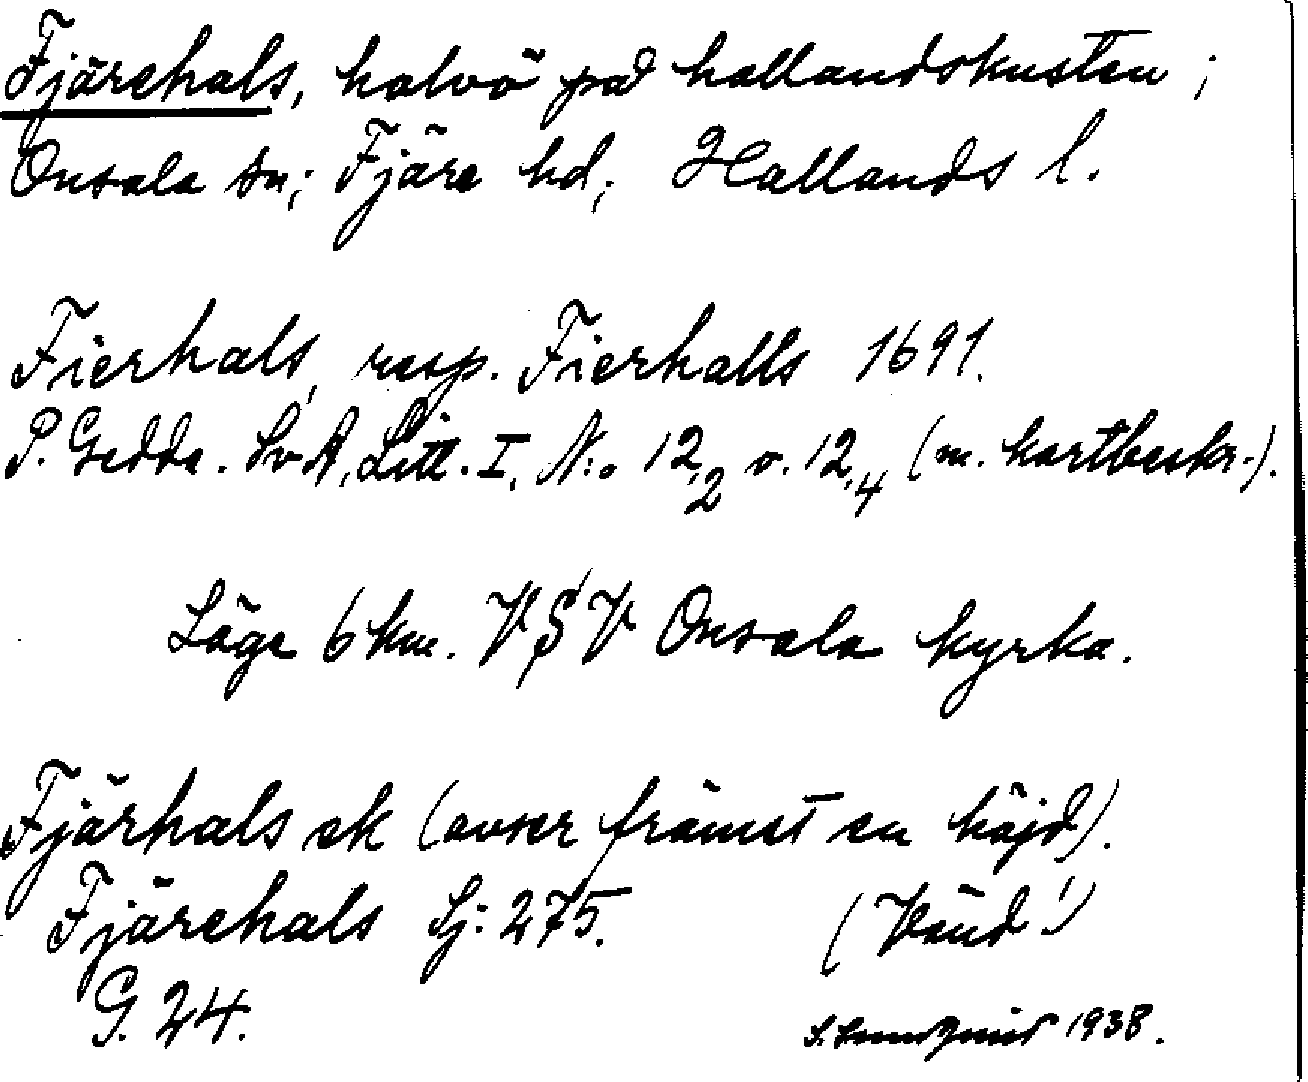 Fjärehals, halvö på hallandskusten;
Onsala sn; Fjäre hd, Hallands l.
Fierhals, resp. Fierhalls 1691.
P. Gedda. SvA, Litt. I, N:o 12,2 o. 12,4 (m. kartbeskr.).
Läge 6 km. VSV Onsala kyrka.
Fjärhals ek (avser främst en höjd).
Fjärehals Sj: 275. (Vänd!)
G. 24.
S. Lundquist 1938.